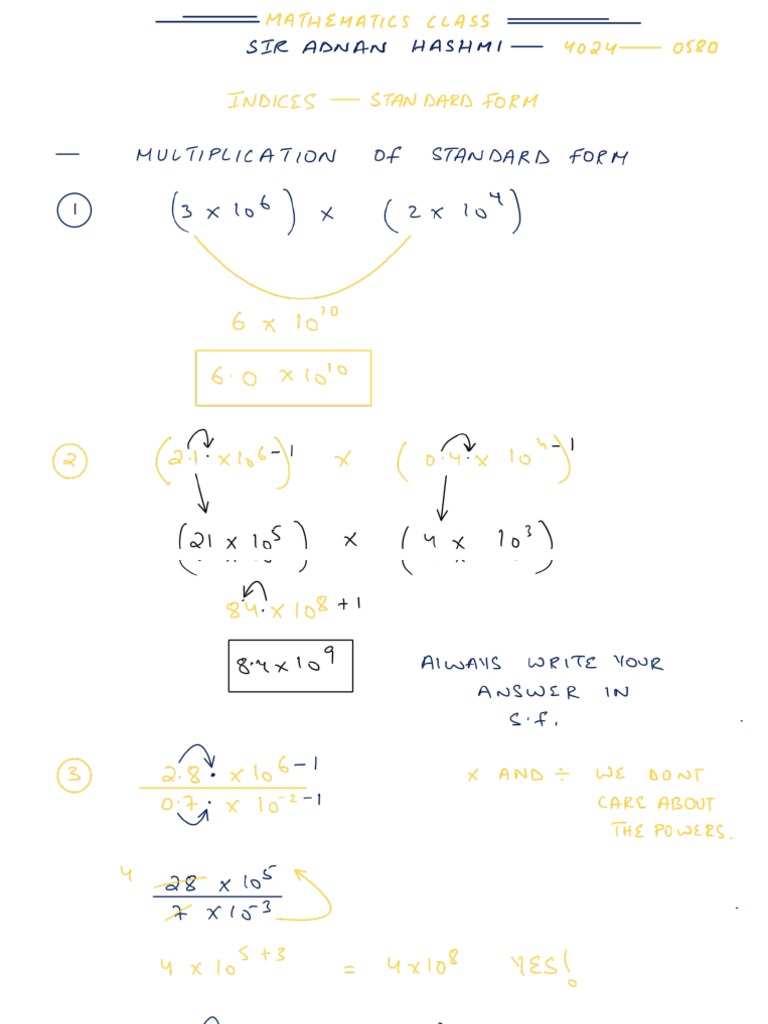 MATHEMATICS CLASS
SIR ADNAN HASHMI — 4024 — 0580
INDICES — STANDARD FORM
— MULTIPLICATION Of STANDARD FORM
1 (3 x 10⁶) x (2 x 10⁴)
6 x 10¹⁰
6.0 x10¹⁰
2 (2.1. x10⁶⁻¹) x (0.4. x 10⁴⁻¹)
(21 x 10⁵) x (4 x 10³)
84. x 10⁸⁺¹
8.4 x 10⁹
AlWAYS WRITE YOUR
ANSWER IN
S.f.
3 2.8. x 10⁶⁻¹
0.7. x 10⁻²⁻¹
x AND ÷ WE DONT
CARE ABOUT
THE POWERS.
4 28 x 10⁵
7 x 10⁻³
4 x 10⁵⁺³ = 4x10⁸ YES!